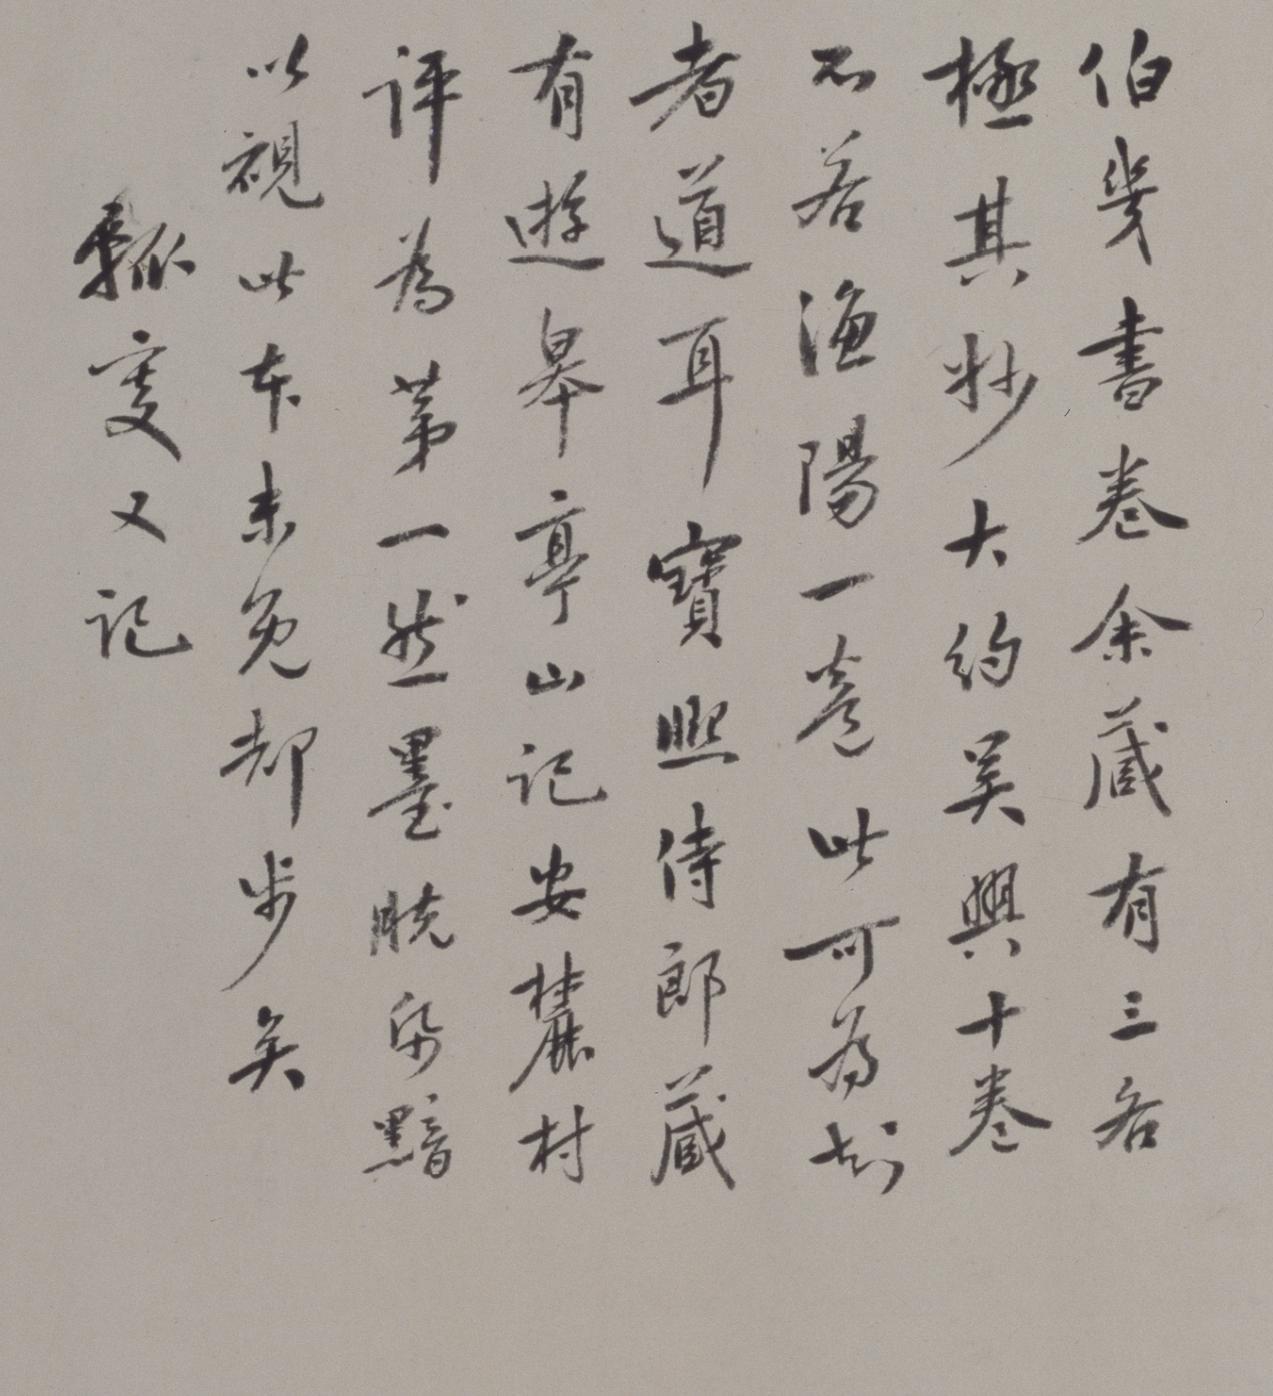 伯幾書卷余藏有三各
極其妙大約吳興十卷
不若漁陽一卷此可為知
者道耳寶熙侍郎藏
有遊皋亭山記安麓村
評為第一然墨脱帋黯
以視此本未免却步矣
瓠叟又記